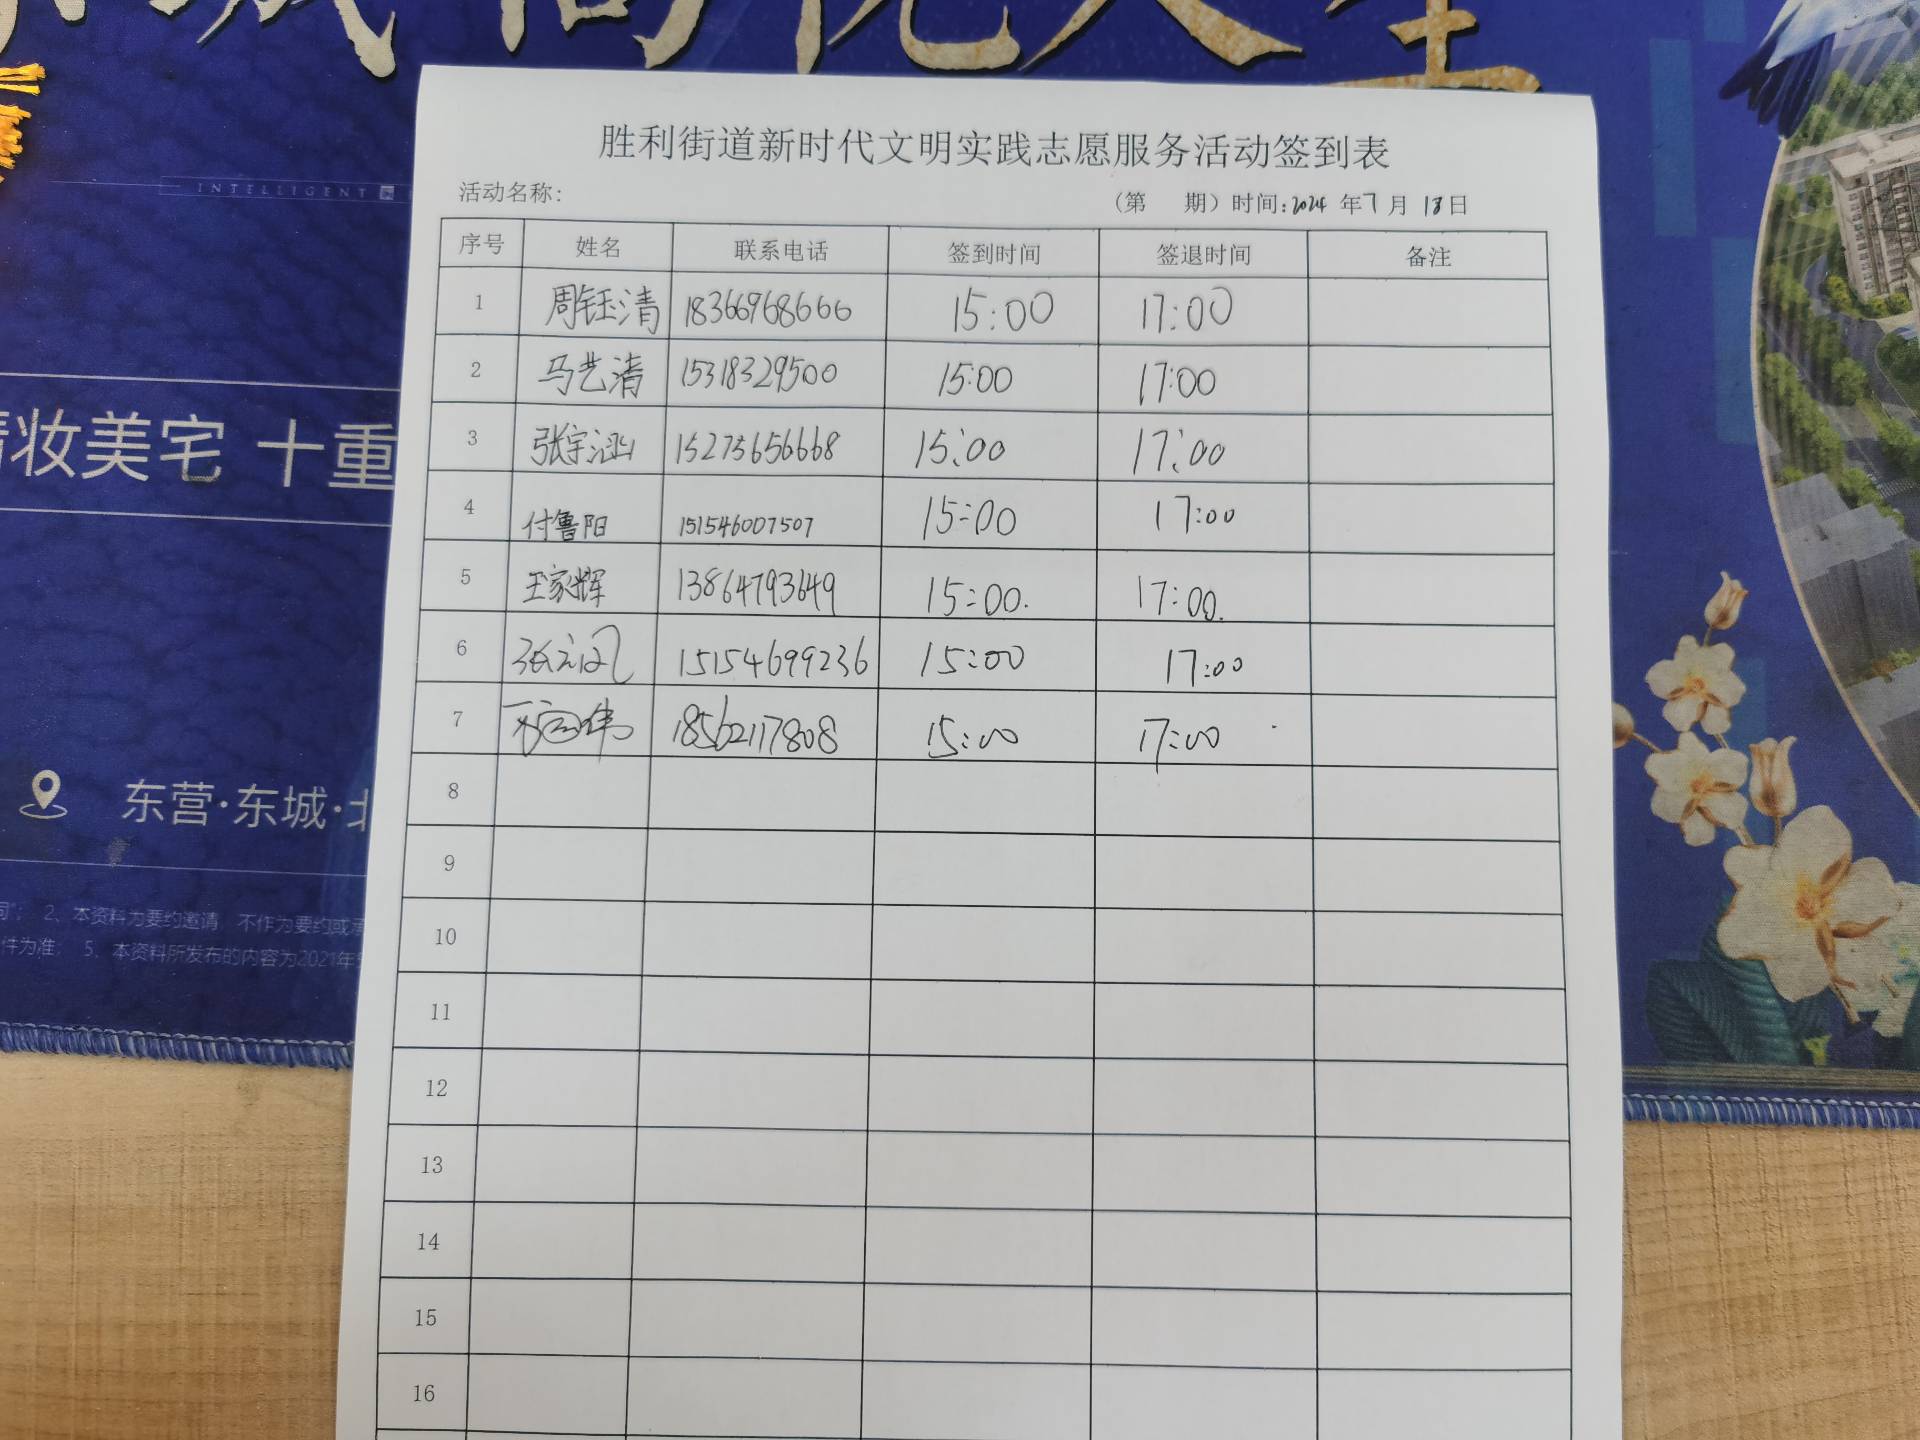 INTELLIGENT
妆美宅 十重
东营·东城·北
2、本资料为要约邀请，不作为要约或承
件为准； 5、本资料所发布的内容为2021年
胜利街道新时代文明实践志愿服务活动签到表
活动名称： （第 期）时间：2024 年7 月 18日
序号 姓名 联系电话 签到时间 签退时间 备注
1 周钰清 18366968666 15:00 17:00
2 马艺清 15318329500 15:00 17:00
3 张宇涵 15275656668 15:00 17:00
4 付鲁阳 151546007507 15:00 17:00
5 王家辉 13864793649 15:00. 17:00.
6 15154699236 15:00 17:00
7 18562117808 15:00 17:00
8
9
10
11
12
13
14
15
16